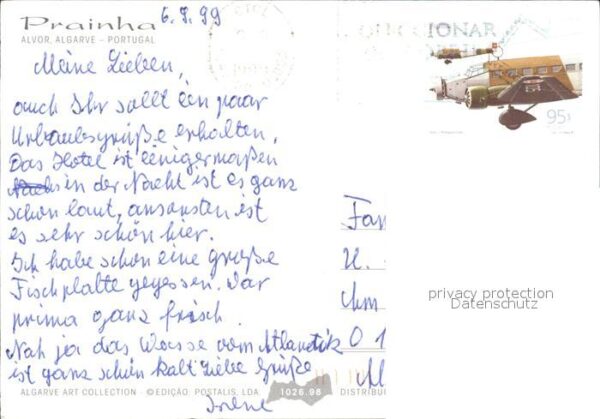 Prainha
ALVOR, ALGARVE - PORTUGAL
6.9.99
COLECCIONAR
95$
Meine Lieben,
auch Ihr sollt ein paar
Urlaubsgrüße erhalten.
Das Hotel ist einigermaßen
in der Nacht ist es ganz
schön laut, ansonsten ist
es sehr schön hier.
Ich habe schon eine große
Fischplatte gegessen. War
prima ganz frisch.
Nah ja das Wasse vom Atlantik
ist ganz schön kalt Liebe Grüße
Irene
Fam
U.
Chm
O 1
M
privacy protection
Datenschutz
ALGARVE ART COLLECTION - © EDIÇÃO: POSTALIS, LDA. 1026.98 DISTRIBU